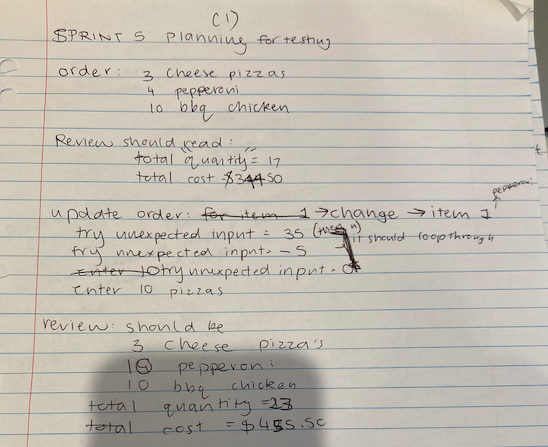 (1)
SPRINT 5 planning for testing
order: 3 cheese pizzas
4 pepperoni
10 bbq chicken
Review should read:
total "quantity" = 17
total cost $344.50
pepperoni
update order: for item 1 → change → item 1
try unexpected input = 35 (then n)
it should loop through
try unexpected input = -5
Enter 10 try unexpected input = 0
enter 10 pizzas
review: should be
3 cheese pizza's
10 pepperoni
10 bbq chicken
total quantity = 23
total cost = $455.50